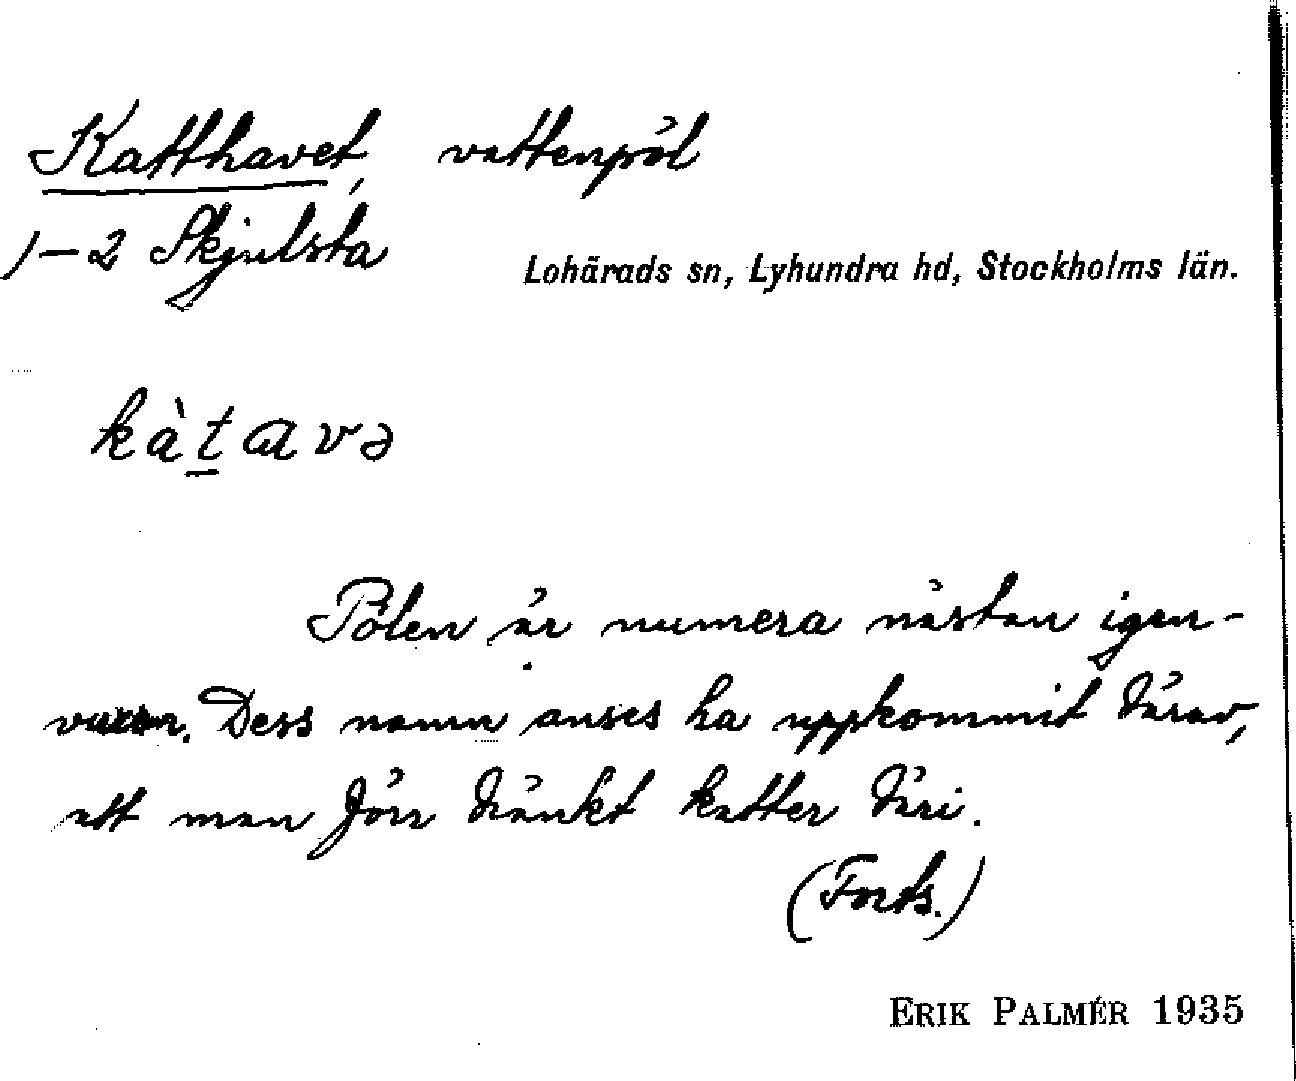 Katthavet, vattenpöl
1-2 Skjulsta
Lohärads sn, Lyhundra hd, Stockholms län.
kàt̠ɑvə
Pölen är numera nästan igen-
vuxen. Dess namn anses ha uppkommit därav,
att man förr dränkt katter däri.
(Forts.)
ERIK PALMÉR 1935